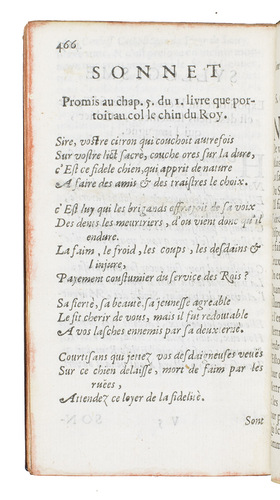 466
SONNET
Promis au chap. 5. du 1. livre que por-
toit au col le chin du Roy.
Sire, vostre citron qui couchoit autrefois
Sur vostre lict sacré, couche ores sur la dure,
c'Est ce fidele chien, qui apprit de nature
A faire des amis & des traistres le choix.
c'Est luy qui les brigands effrayoit de sa voix
Des dents les meurtriers, d'ou vient donc qu'il
endure.
La faim, le froid, les coups, les desdains &
l'injure,
Payement coustumier du service des Rois?
Sa fierté, sa beauté, sa jeunesse agreable
Le fit cherir de vous, mais il fut redoutable
A vos lasches ennemis par sa dexterité.
Courtisans qui jettez vos desdaigneuses veuës
Sur ce chien delaissé, mort de faim par les
ruëes,
Attendez ce loyer de la fidelité.
Sont